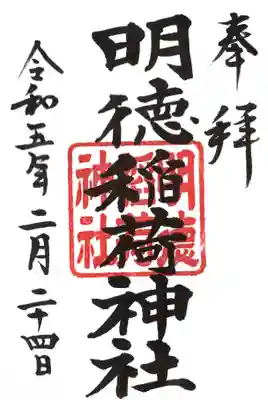 奉拝
明徳稲荷神社
明徳稲荷神社
令和五年二月二十四日